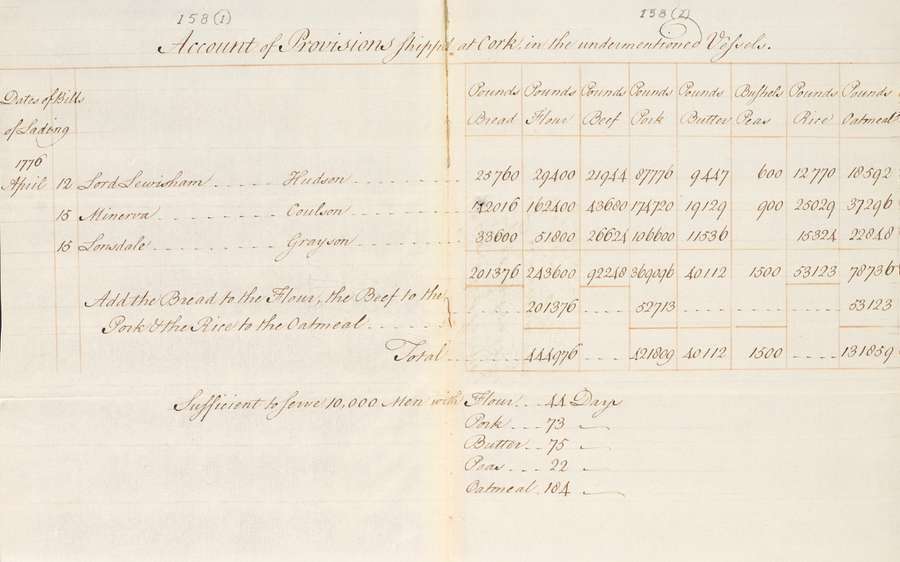 158 (1) 158 (2)
Account of Provisions shipp'd at Cork in the undermentioned Vessels.
Dates of Bills Pounds Pounds Pounds Pounds Pounds Bushels Pounds Pounds
of Lading Bread Flour Beef Pork Butter Peas Rice Oatmeal
1776
April 12 Lord Lewisham Hudson 25760 29400 21944 87776 9447 600 12770 18592
15 Minerva Coulson 142016 162400 43680 174720 19129 900 25029 37296
15 Lonsdale Grayson 33600 51800 26624 106600 11536 15324 22848
201376 243600 92248 369096 40112 1500 53123 78736
Add the Bread to the Flour, the Beef to the 201376 52713 53123
Pork & the Rice to the Oatmeal
Total 444976 421809 40112 1500 131859
Sufficient to serve 10,000 Men with Flour 44 Days
Pork 73
Butter 75
Peas 22
Oatmeal 184